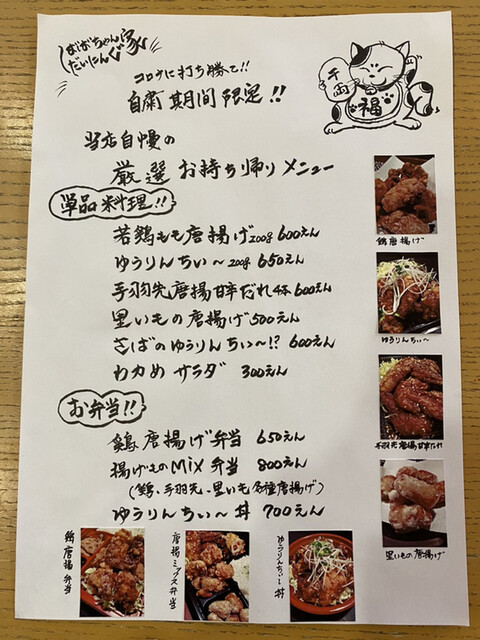 ばばちゃん家
だいにんぐ
コロナに打ち勝て!!
自粛期間限定!!
千両
福
当店自慢の
厳選 お持ち帰りメニュー
単品料理!!
若鶏もも唐揚げ200g 600えん
ゆうりんちぃ〜200g 650えん
手羽先唐揚甘辛だれ4本600えん
里いもの唐揚げ500えん
さばのゆうりんちぃ〜!? 600えん
わかめサラダ 300えん
お弁当!!
鶏唐揚げ弁当 650えん
揚げものMix弁当 800えん
(鶏、手羽先、里いも各種唐揚げ)
ゆうりんちぃ〜丼 700えん
鶏唐揚げ
ゆうりんちぃ〜
手羽先唐揚甘辛だれ
里いもの唐揚げ
鶏唐揚弁当
唐揚ミックス弁当
ゆうりんちぃ〜丼